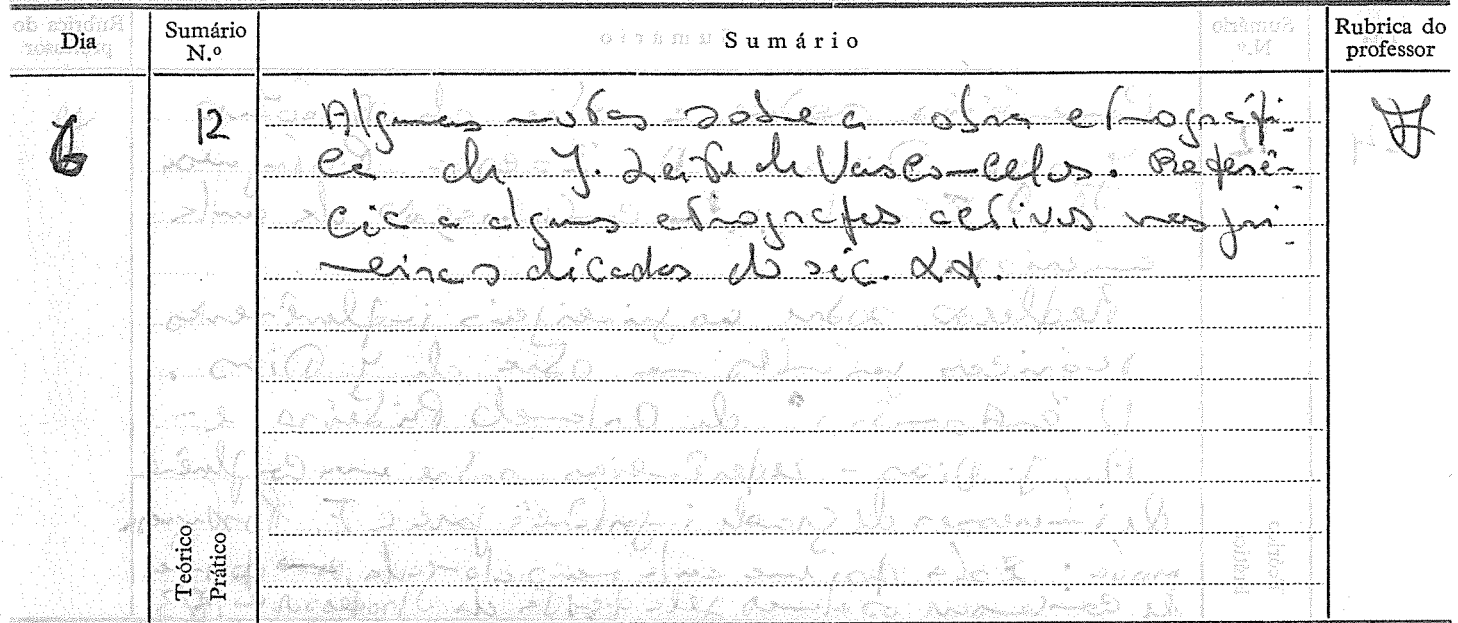 Dia Sumário N.º Sumário Rubrica do professor
6 12 Algumas notas sobre a obra etnográfi-
ca de J. Leite de Vasconcelos. Referên-
cia a alguns etnógrafos activos nas pri-
meiras décadas do séc. XX.
Teórico
Prático